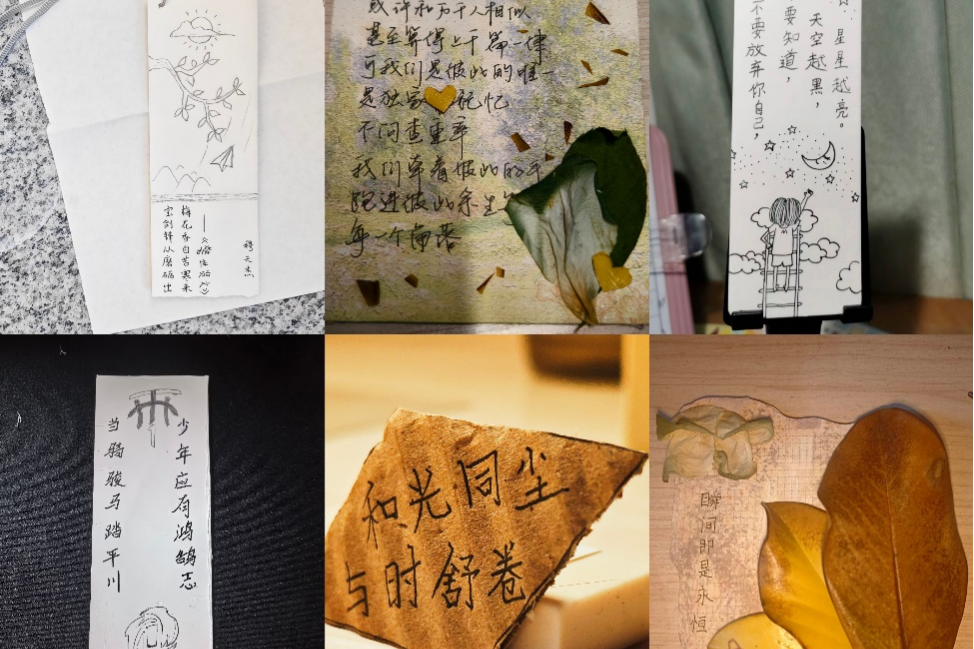 宝剑锋从磨砺出
梅花香自苦寒来
——《
或许和万千人相似
甚至算得上千篇一律
可我们是彼此的唯一
是独家记忆
不问查重率
我们牵着彼此的手
跑进彼此余生
每一个角落
星星越亮。
天空越黑，
要知道，
不要放弃你自己，
少年应有鸿鹄志
当骑骏马踏平川
和光同尘
与时舒卷
瞬间即是永恒